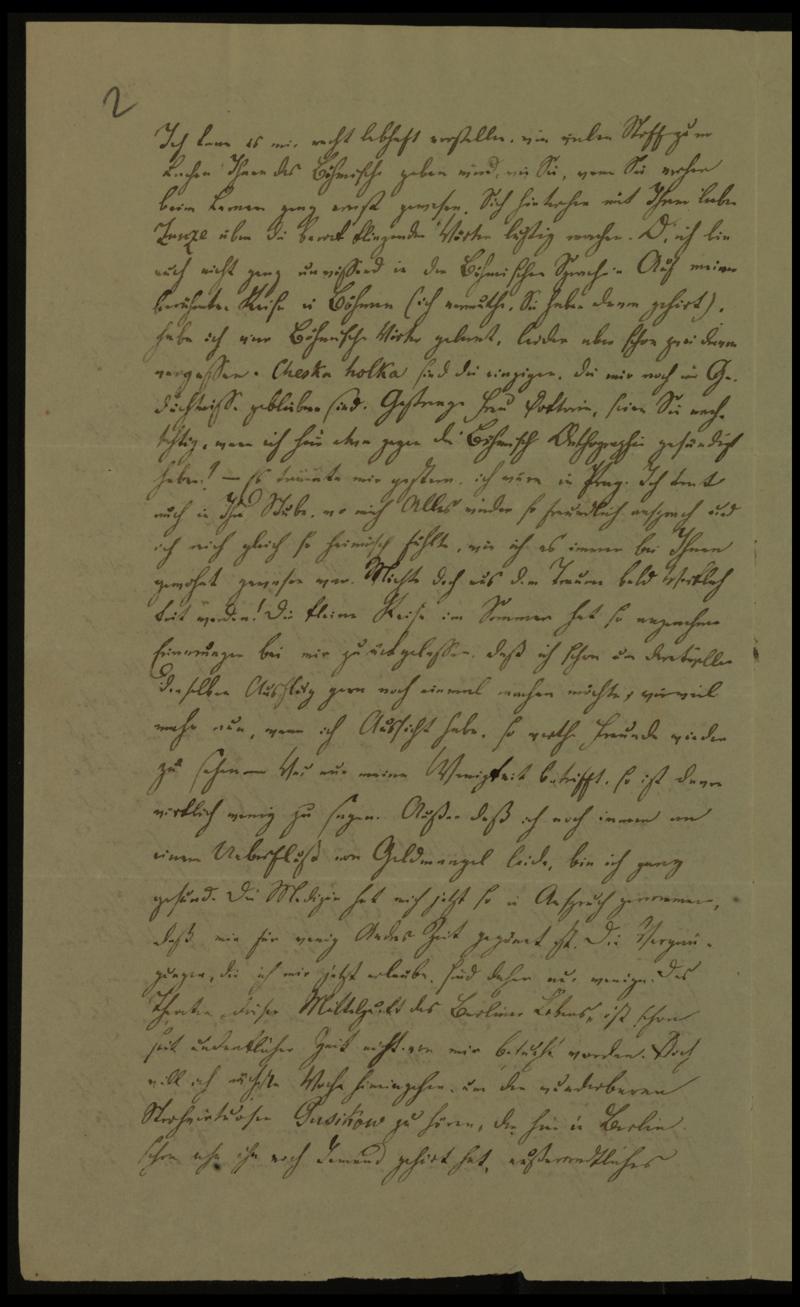 2
Ich kann es mir recht lebhaft vorstellen, wie vielen Stoff zum
Lachen Ihnen das Böhmische geben wird, wie Sie, wenn Sie vorher
beim Lernen ganz ernst gewesen, Sich hinterher mit Ihrem lieben
Zunze über die klingenden Wörter lustig machen. O, ich bin
auch nicht ganz unwissend in der Böhmischen Sprache. Auf meiner
berühmten Reise in Böhmen (ich vermuthe, Sie haben davon gehört),
habe ich vier Böhmische Wörter gelernt, leider aber schon zwei davon
vergessen. Cheska holka sind die einzigen, die mir noch im Ge-
dächtnisse geblieben sind. Gestrenge Frau Doktorin, seien Sie nach-
sichtig, wenn ich hier etwa gegen die Böhmisch Orthographie gesündigt
habe! — Es träumte mir gestern, ich wäre in Prag. Ich trat
auch in Ihre Stube, wo mich Alles wieder so freundlich ansprach und
ich mich gleich so heimisch fühlte, wie ich es immer bei Ihnen
gewohnt gewesen war. Möchte doch aus dem Traume bald Wirklich
keit werden! Die kleine Reise im Sommer hat so angenehme
Erinnerungen bei mir zurückgelassen, daß ich schon um derentwillen
denselben Ausflug gern noch einmal machen möchte, wieviel
mehr nun, wenn ich Aussicht habe, so werthe Freunde wieder
zu sehen — Was nun meine Wenigkeit betrifft, so ist davon
wirklich wenig zu sagen. Außer daß ich noch immer an
einem Ueberfluß von Geldmangel leide, bin ich ganz
gesund. Die Medizin hat mich jetzt so in Anspruch genommen,
daß mir für wenig Andres Zeit gegönnt ist. Die Vergnü-
gungen, die ich mir jetzt erlaube, sind daher nur wenige. Das
Theater, dieser Mittelpunkt des Berliner Lebens, ist schon
seit undenklicher Zeit nicht von mir besucht worden. Doch
will ich nächste Woche hineingehen, um den wunderbaren
Strohvirtuosen Gusikow zu hören, der hier in Berlin
schon ehe ihn noch Jemand gehört hat, außerordentliches